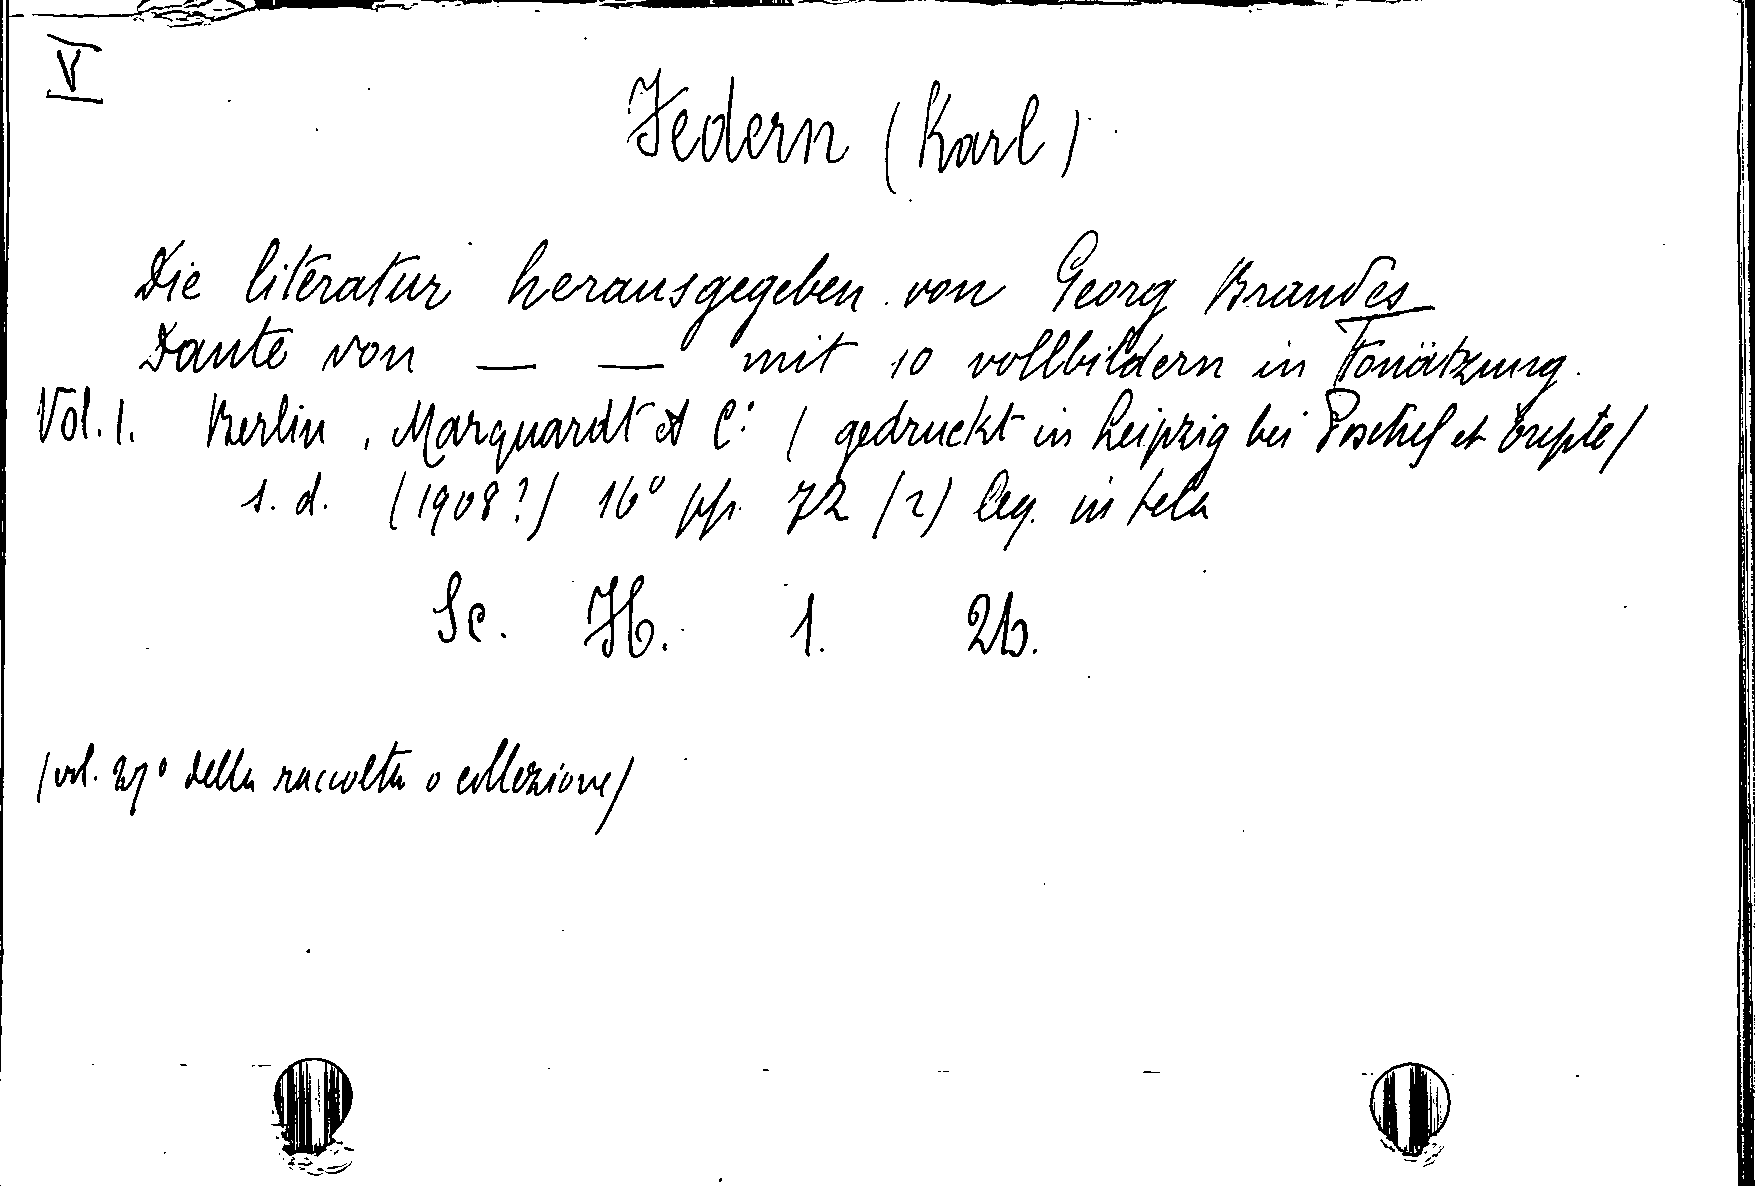 V
Federn (Karl)
Die literatur herausgegeben von Georg Brandes
Dante von — — mit 10 vollbildern in Tonätzung.
Vol. 1. Berlin, Marquardt et C. (gedruckt in Leipzig bei Poschel et
s. d. (1908?) 16° pp. 72 (2) leg. in tela
Sc. H. 1. 26.
(vol. 27° della raccolta o collezione)